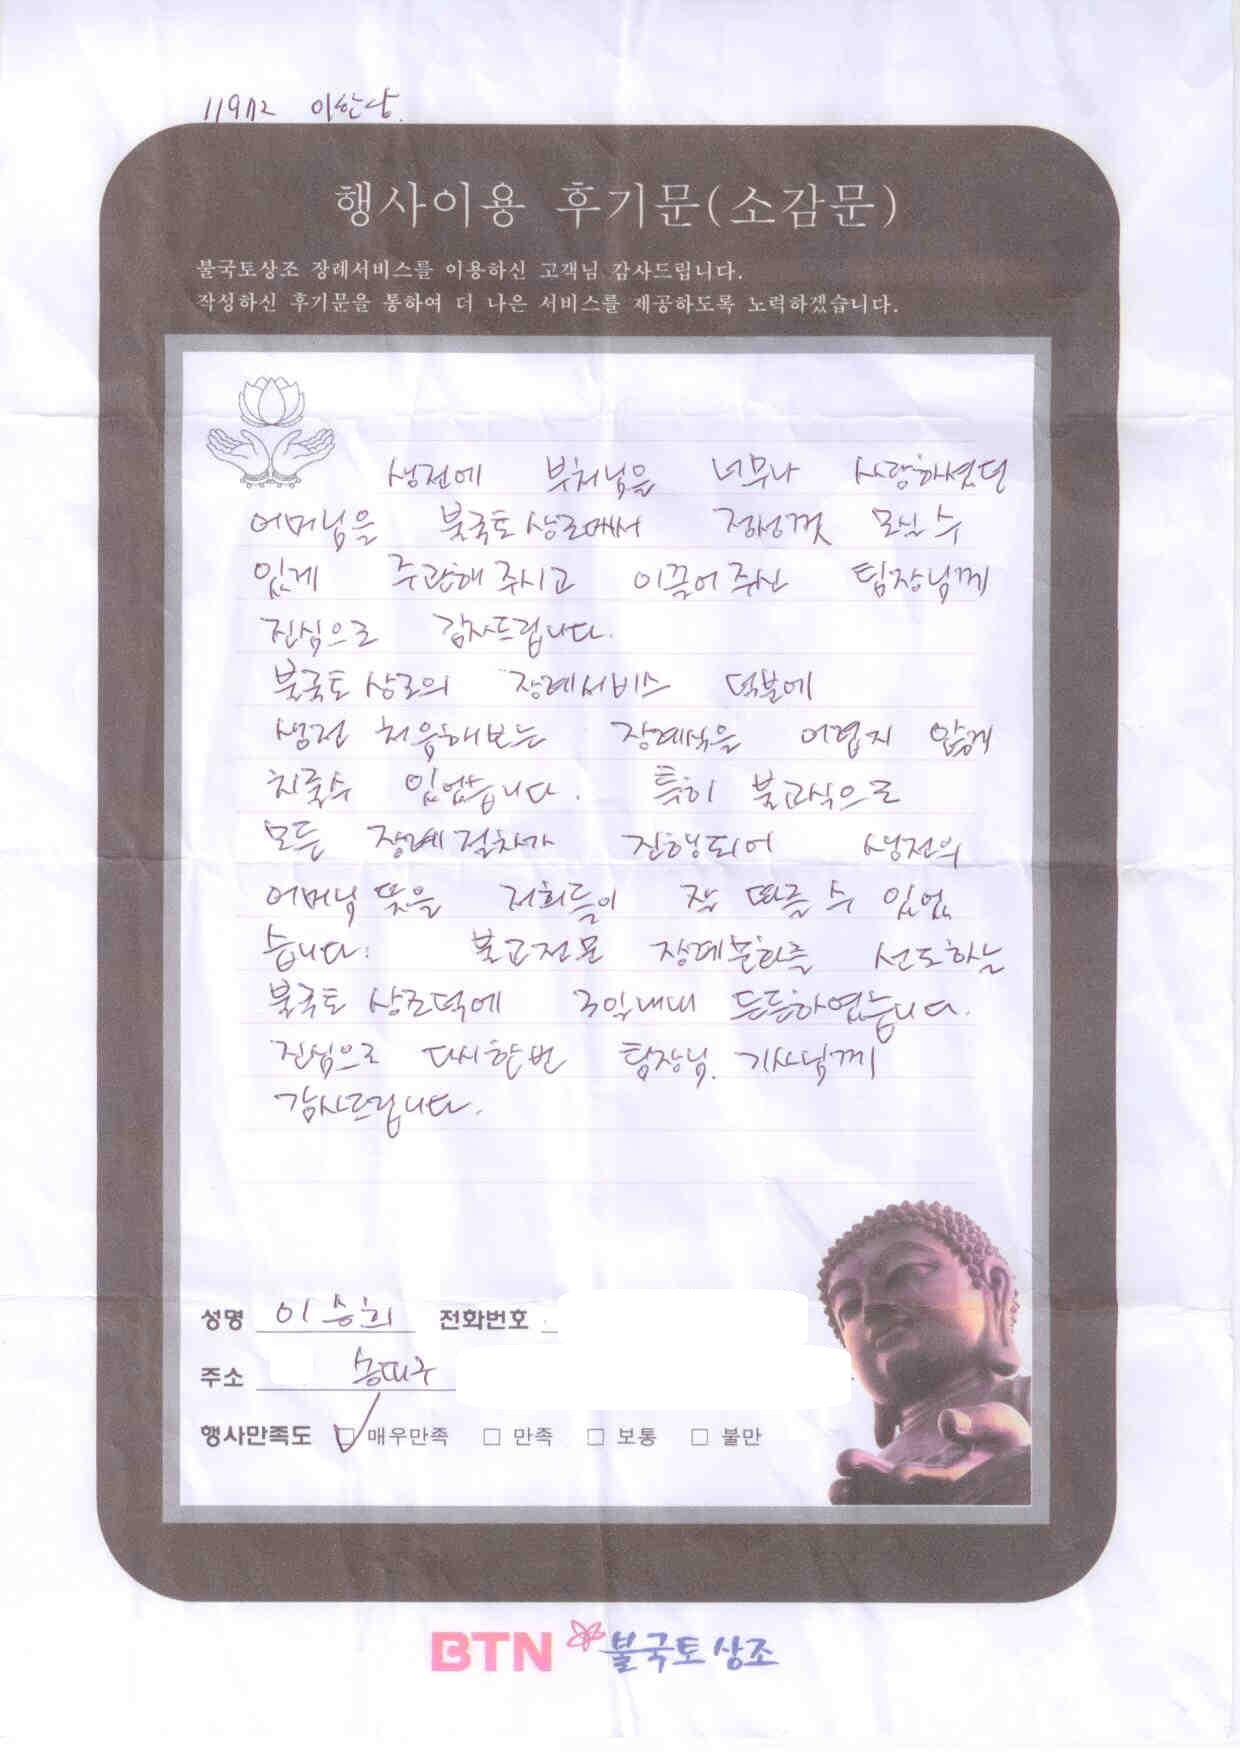 행사이용 후기문(소감문)
불국토상조 장례서비스를 이용하신 고객님 감사드립니다.
작성하신 후기문을 통하여 더 나은 서비스를 제공하도록 노력하겠습니다.
생전에 부처님을 너무나 사랑하셨던
어머님을 불국토상조에서 정성껏 모실 수
있게 주관해 주시고 이끌어 주신 팀장님께
진심으로 감사드립니다.
불국토 상조의 장례서비스 덕분에
생전 처음해보는 장례식을 어렵지 않게
치룰수 있었습니다. 특히 불교식으로
모든 장례절차가 진행되어 생전의
어머님 뜻을 저희들이 잘 따를 수 있었
습니다. 불교전문 장례문화를 선도하는
불국토 상조덕에 3일내내 든든하였습니다.
진심으로 다시한번 팀장님. 기사님께
감사드립니다.
성명 이승희 전화번호
주소
행사만족도 매우만족 만족 보통 불만
BTN 불국토상조